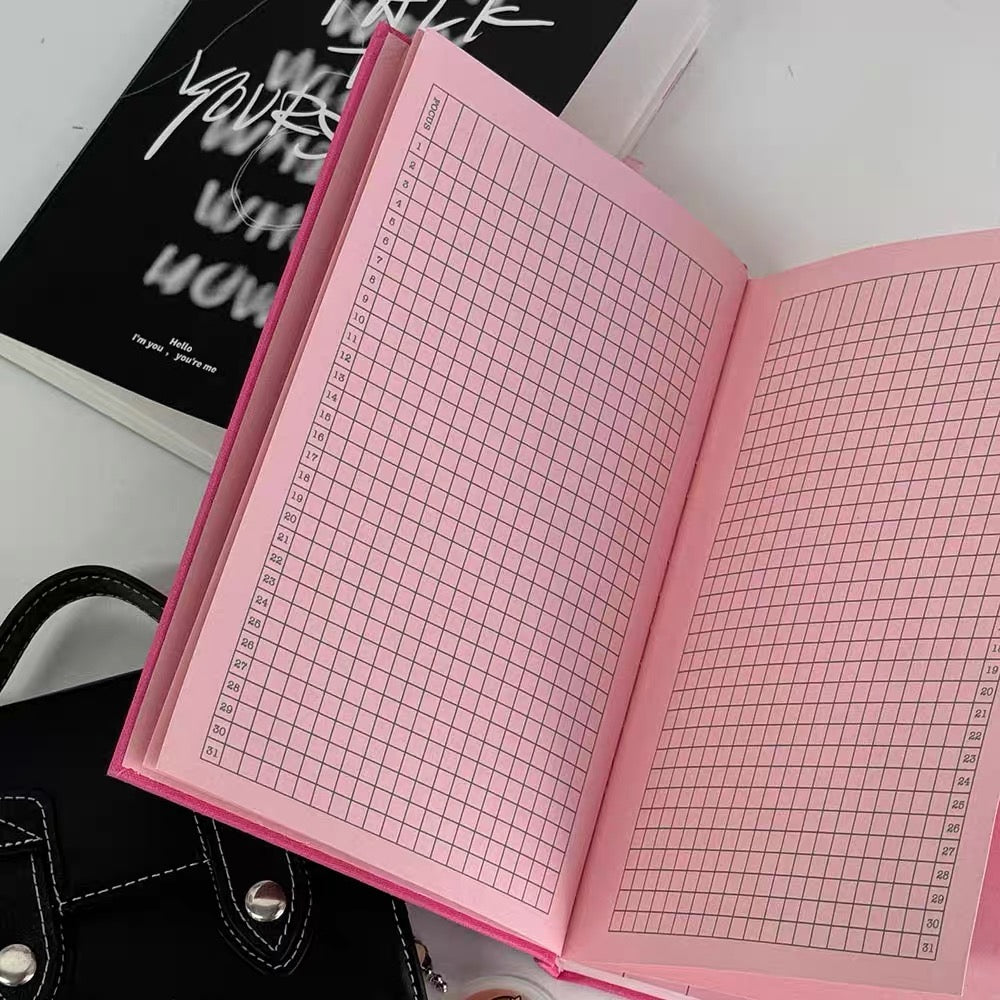 TALK
YOURS
Hello
I'm you , you're me
FOCUS
1
2
3
4
5
6
7
8
9
10
11
12
13
14
15
16
17
18
19
20
21
22
23
24
25
26
27
28
29
30
31
19
20
21
22
23
24
25
26
27
28
29
30
31